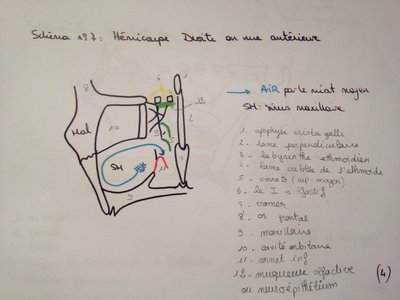 Schéma n°7: Hémicoupe Droite en vue antérieure
8
6
4
1
12
2
10
Mal
5
SM
11
7
9
→ AiR par le méat moyen
SM: sinus maxillaire
1. apophyse crista galli
2. lame perpendiculaire
3. labyrinthe ethmoïdien
4. lame criblée de l'ethmoïde
5. cornets (sup-moyen)
6. le I olfactif
7. vomer
8. os frontal
9. maxillaire
10. cavité orbitaire
11. cornet inf
12. muqueuse olfactive
ou neuroépithélium
(4)